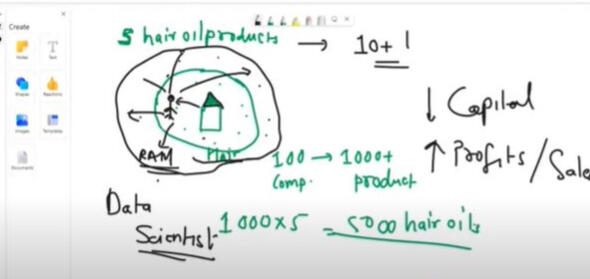 Create
5 hair oil products → 10+1
Notes
Text
Shapes
Reactions
Images
Templates
Documents
↓ Capital
↑ Profits/Sale
RAM
Hair
100 → 1000+
Comp. product
Data
Scientist
1000x5 = 5000 hair oils